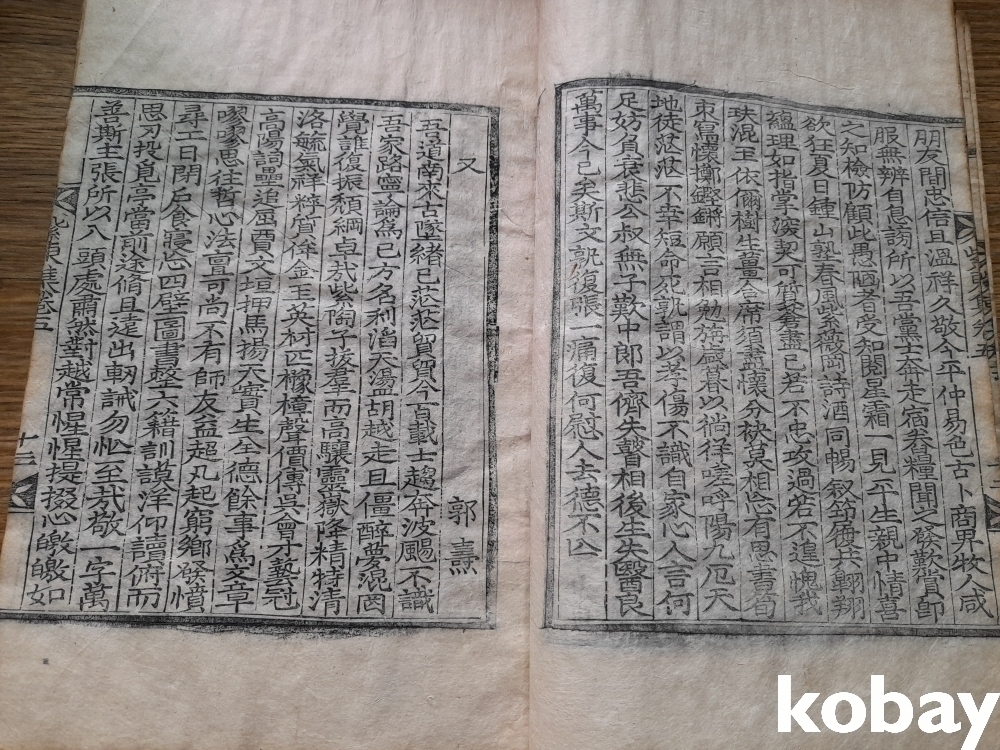 朋友間忠信且溫祥久敬今平仲易色古卜商男牧人咸
服無辨自息謗所以吾黨士奔走宿舂糧聞之發歎賞卽
之知檢防顧此愚陋者受知閱星霜一見平生親中情喜
欲狂夏日鍾山塾春風紫薇岡詩酒同暢敘節屨共翱翔
蘊理如指掌淡契可質蒼盡己若不忠攻過若不遑愧我
玞混玉依爾樹生薑合席須盡懷分袂莫相忘有思書荀
束爲懷擲鏗鏘願言相勉旃歲暮以徜徉嗟呼陽九厄天
地徒茫茫不幸短命死孰謂以孝傷不識自家心人言何
足妨負哀悲公叔無子歎中郎吾儕失聲相後生失醫良
萬事今已矣斯文孰復張一痛復何慰人去德不亾
又 郭燾
吾道南來古墜緖已茫茫貿貿今百載士趨奔波颺不識
吾家路寧論爲己方名利滔天盪胡越走且僵醉夢混同
覺誰復振頹綱卓哉紫陶子拔羣而高驤靈嶽降精特淸
洛毓氣祥粹質侔金玉英材匹櫲樟聲價傳吳會才藝冠
高陽詞壘追屈賈文垣押馬揚天實生全德餘事爲文章
嘐嘐思往哲心法亶可尚不有師友益超凡起窮鄉發憤
尋工日閉戶食寢忘四壁圖書整六籍訓謨洋仰讀俯而
思刃投覓亭當前途脩且遠出軔誡勿忙至哉敬一字萬
善斯主張所以入頭處肅然對越常惺惺提掇心皦皦如
十二
kobay